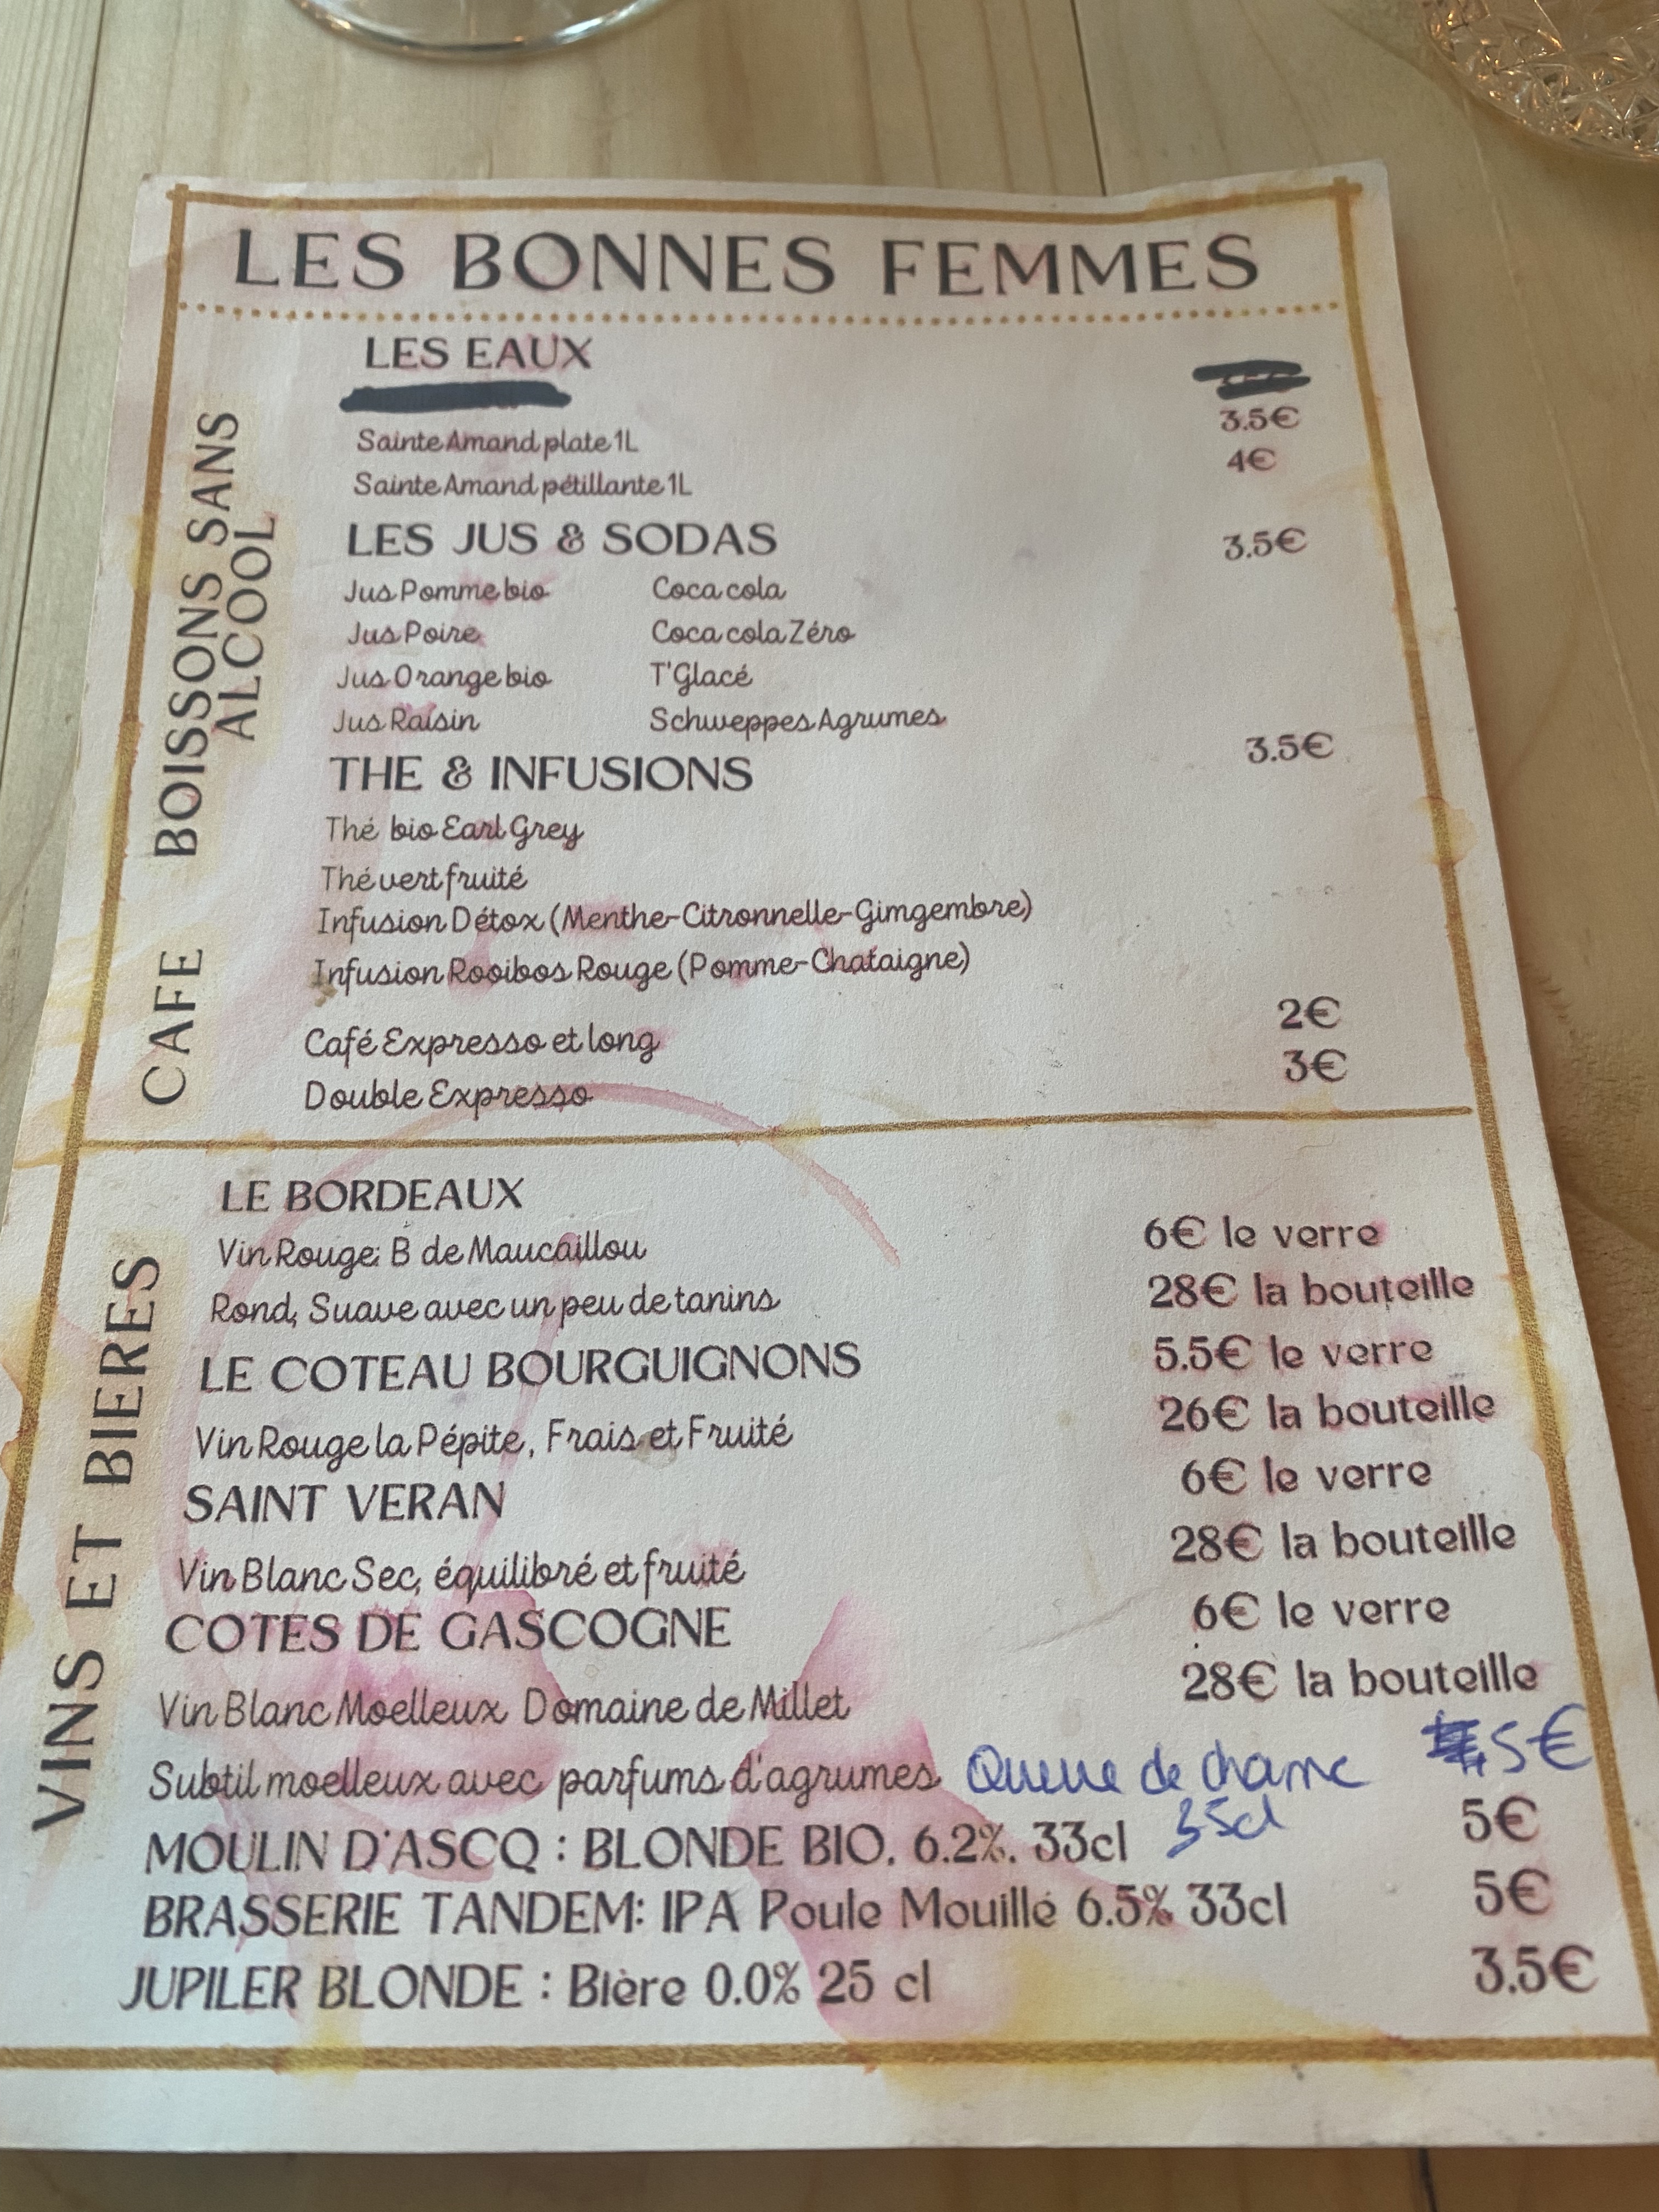 LES BONNES FEMMES
BOISSONS SANS
ALCOOL
LES EAUX
Sainte Amand plate 1L 3.5€
Sainte Amand pétillante 1L 4€
LES JUS & SODAS 3.5€
Jus Pomme bio Coca cola
Jus Poire Coca cola Zéro
Jus Orange bio T'Glacé
Jus Raisin Schweppes Agrumes
THE & INFUSIONS 3.5€
Thé bio Earl Grey
Thé vert fruité
Infusion Détox (Menthe-Citronnelle-Gimgembre)
Infusion Rooibos Rouge (Pomme-Chataigne)
CAFE
Café Expresso et long 2€
Double Expresso 3€
VINS ET BIERES
LE BORDEAUX
Vin Rouge: B de Maucaillou 6€ le verre
Rond, Suave avec un peu de tanins 28€ la bouteille
LE COTEAU BOURGUIGNONS 5.5€ le verre
Vin Rouge la Pépite, Frais et Fruité 26€ la bouteille
SAINT VERAN 6€ le verre
Vin Blanc Sec, équilibré et fruité 28€ la bouteille
COTES DE GASCOGNE 6€ le verre
Vin Blanc Moelleux Domaine de Millet 28€ la bouteille
Subtil moelleux avec parfums d'agrumes
Queue de charrue 5€
35cl
MOULIN D'ASCQ : BLONDE BIO. 6.2%. 33cl 5€
BRASSERIE TANDEM: IPA Poule Mouillé 6.5% 33cl 5€
JUPILER BLONDE : Bière 0.0% 25 cl 3.5€